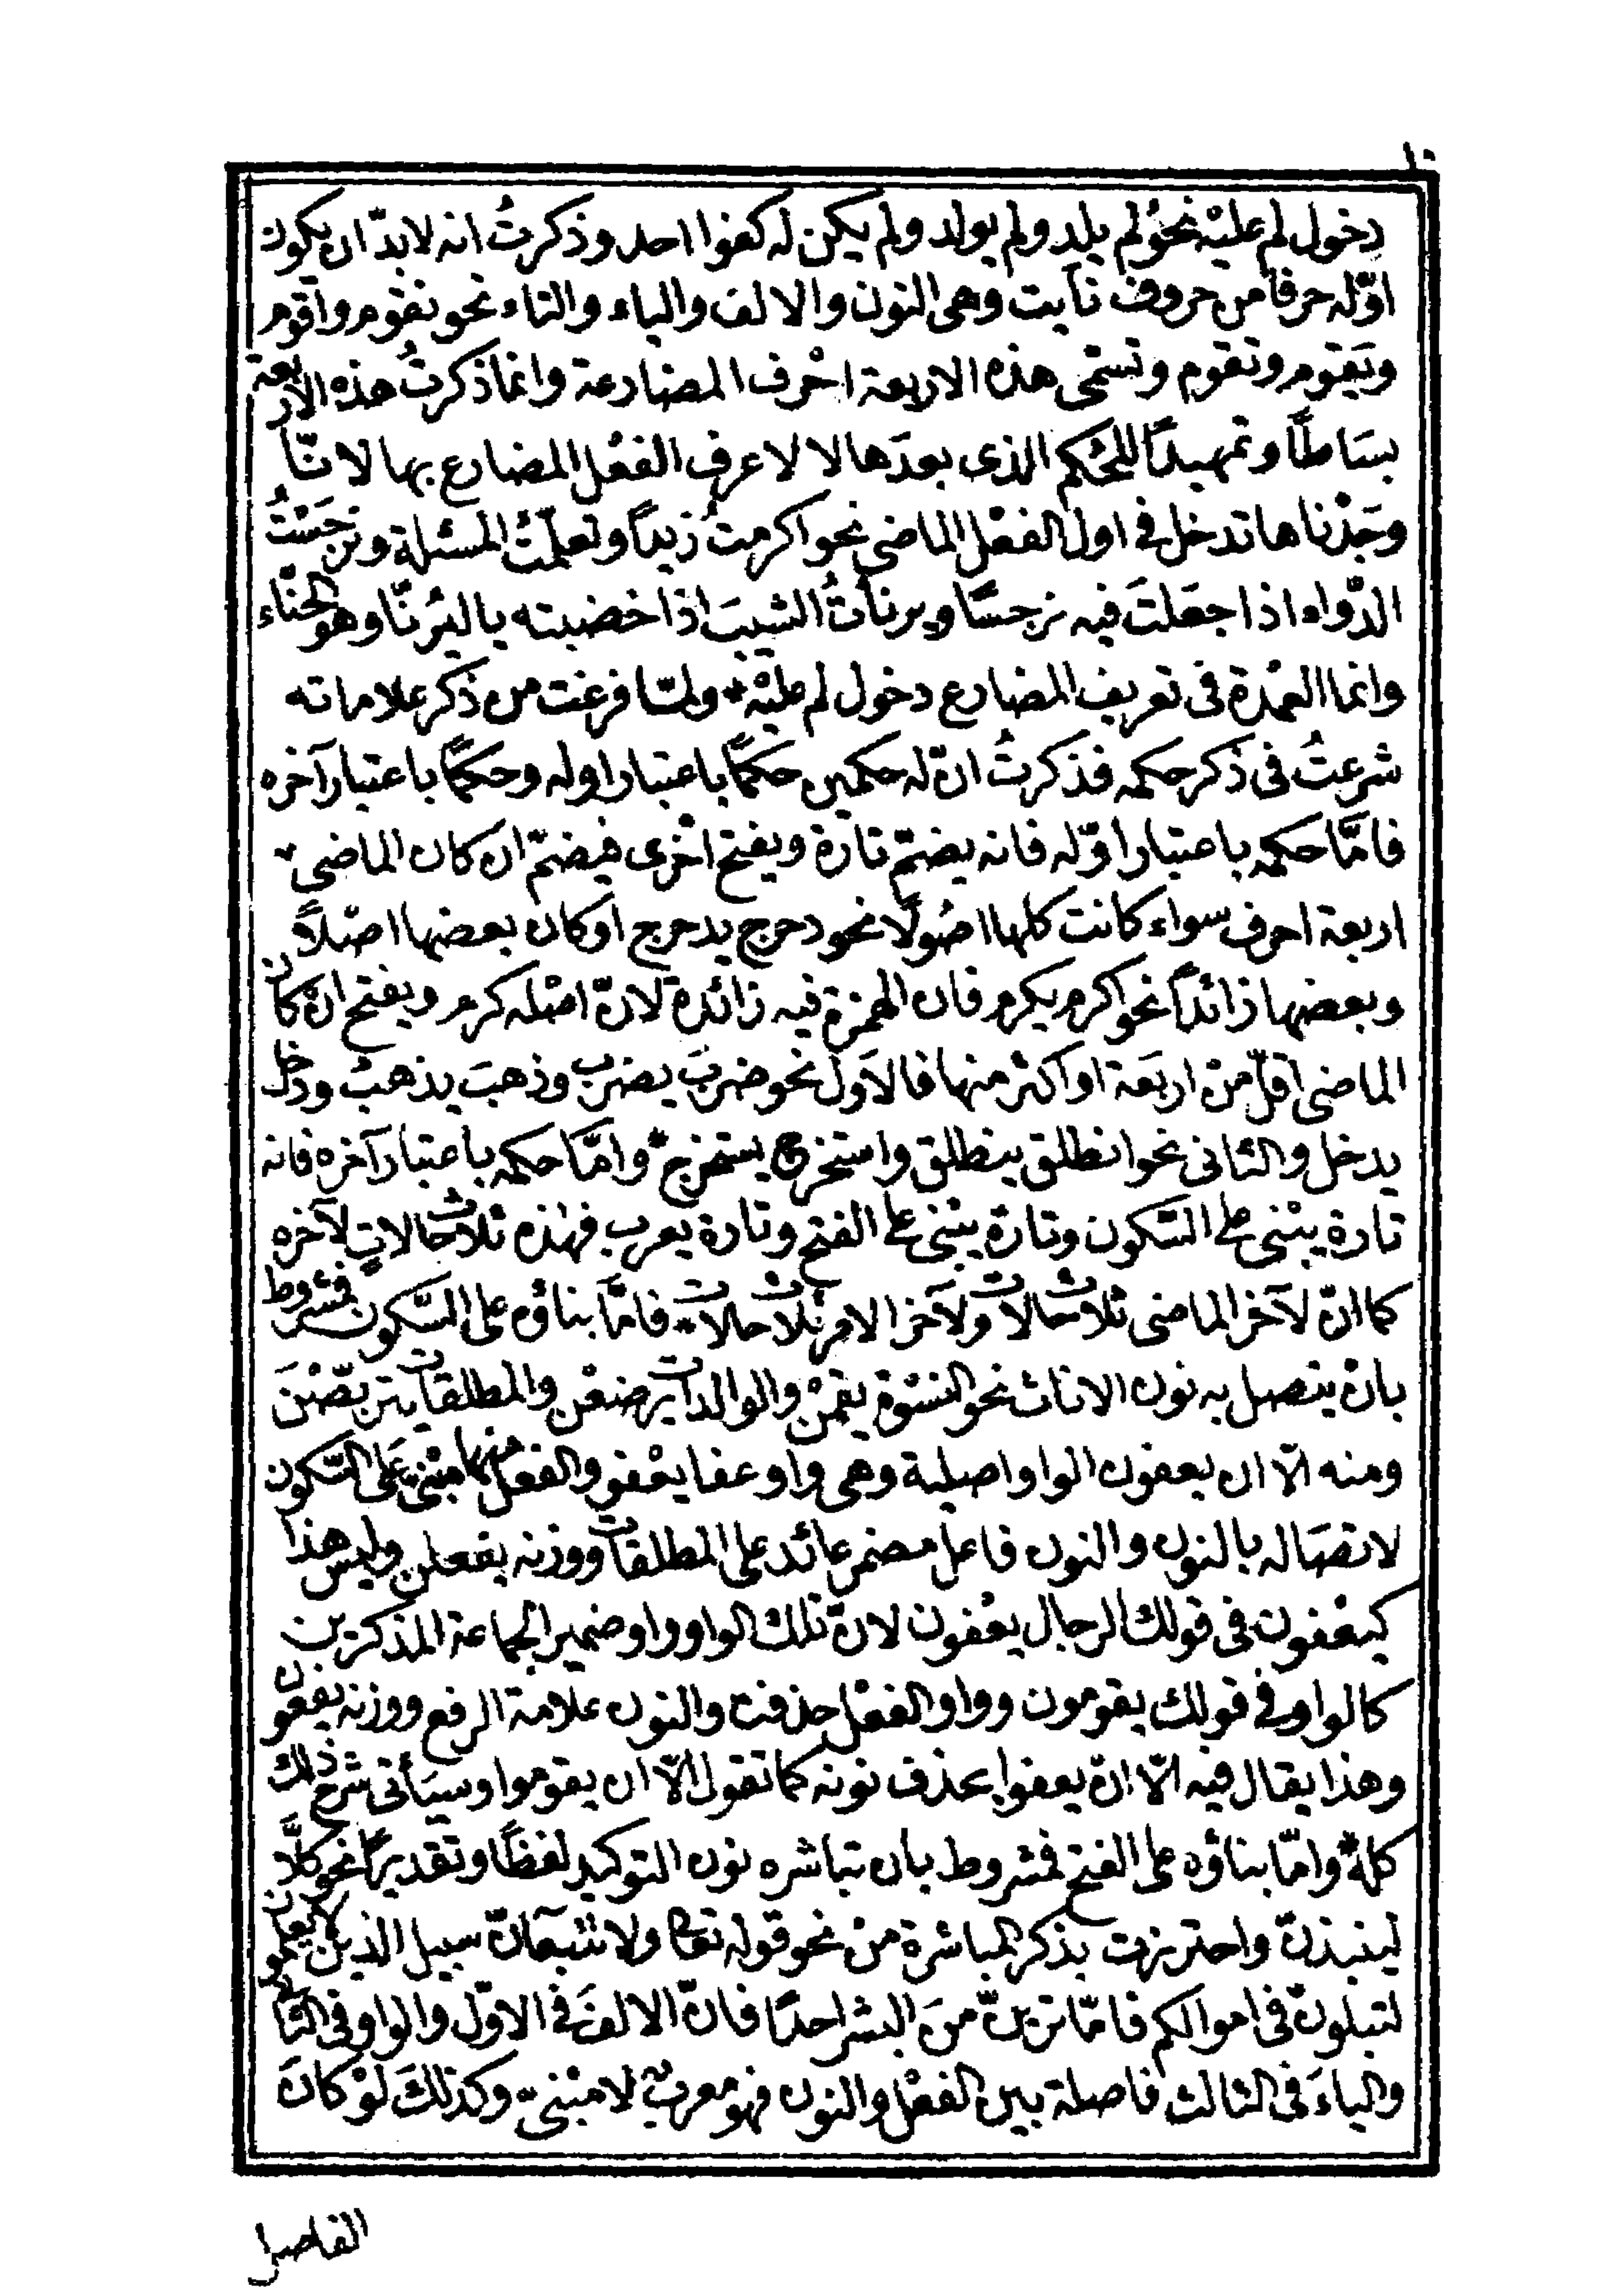 ١٠
دخول لم عليْه نحوُ لم يلد ولم يولد ولم يكن له كفوا احد وذكرتُ انه لابدّ ان يكون
اوّله حرفا من حروف نأيت وهى النون والالف والياء والتاء نحو نقوم واقوم
ويَقوم وتقوم وتسمّى هذه الاربعة احْرف المضارعة وانما ذكرتُ هذه الاربعة
بسَاطًا وتمهيدًا للحُكم الذى بعدَها لا لاعرف الفعْل المضارع بها لانّا
وجَدْناها تدخل فى اول الفعْل الماضى نحو اكرمتُ زيداً وتعلّمتُ المسئلة ونرجَسْتُ
الدّواء اذا جعَلتَ فيه نرجسًا ويرنأتُ الشيبَ اذا خضبته باليُرنّا وهو الحنّاء
وانما العمْدة فى تعريف المضارع دخول لم عليْه * ولمّا فرغت من ذكر علاماته
شرعتُ فى ذكر حكمه فذكرتُ انّ له حكمين حكمًا باعتبار اوله وحكمًا باعتبار آخره
فامّا حكمه باعتبار اوّله فانه يضمّ تارة ويفتح اخْرى فيضمّ ان كان الماضى
اربعة احرف سواء كانت كلها اصُولًا نحو دحرج يدحرج اوكان بعضها اصْلاً
وبعضها زائداً نحو اكرم يكرم فان الهمزة فيه زائدة لانّ اصْله كرم ويفتح انْ كان
الماضى اقلّ منْ اربَعة او اكثر منها فالاَول نحو ضربَ يضرب وذهبَ يذهبُ ودخل
يدخل والثانى نحو انطلق ينطلق واستخرج يستخرج * وامّا حكمه باعتبار آخره فانه
تارة يبْنى على السّكون وتارة يبْنى على الفتح وتارة يعرب فهذه ثلاث حالات لآخره
كما انّ لآخر الماضى ثلاث حالات ولآخر الامر ثلاث حالات * فامّا بناؤه على السّكون فمشروط
بانْ يتصل به نون الاناث نحو النسْوة يقمْن والوالدات يرضعْن والمطلقات يتربّصْنَ
ومنه الّا ان يعفون الواو اصلية وهى واو عفا يعْفو والفعْل منها مبْنىّ عَلى السّكون
لاتصَاله بالنون والنون فاعل مضمر عائد على المطلقات ووزنه يفعلن وليس هذا
كيعْفون فى قولك الرجال يعْفون لانّ تلك الواو واو ضمير الجماعة المذكرين
كالواو فى قولك يقومون وواو الفعْل حذفت والنون علامة الرفع ووزنه يفعون
وهذا يقال فيه الّا انْ يعفوا بحذف نونه كما تقول الّا ان يقوموا وسيَأتى شرح ذلك
كله * وامّا بناؤه على الفتح فمشروط بان تباشره نون التوكيد لفظًا وتقديرًا نحو كلَّا
لينبذنّ واحترزت بذكر المباشرة منْ نحو قوله تعالى ولا تتّبعآنّ سبيل الذين لا يعلمون
لتبلونّ فى اموالكم فامّا ترينّ منَ البشر احدًا فانّ الالفَ فى الاوّل والواو فى الثانى
والياءَ فى الثالث فاصلة بين الفعْل والنون فهو معربٌ لا مبْنىّ وكذلكَ لوْ كانَ
الفاصل